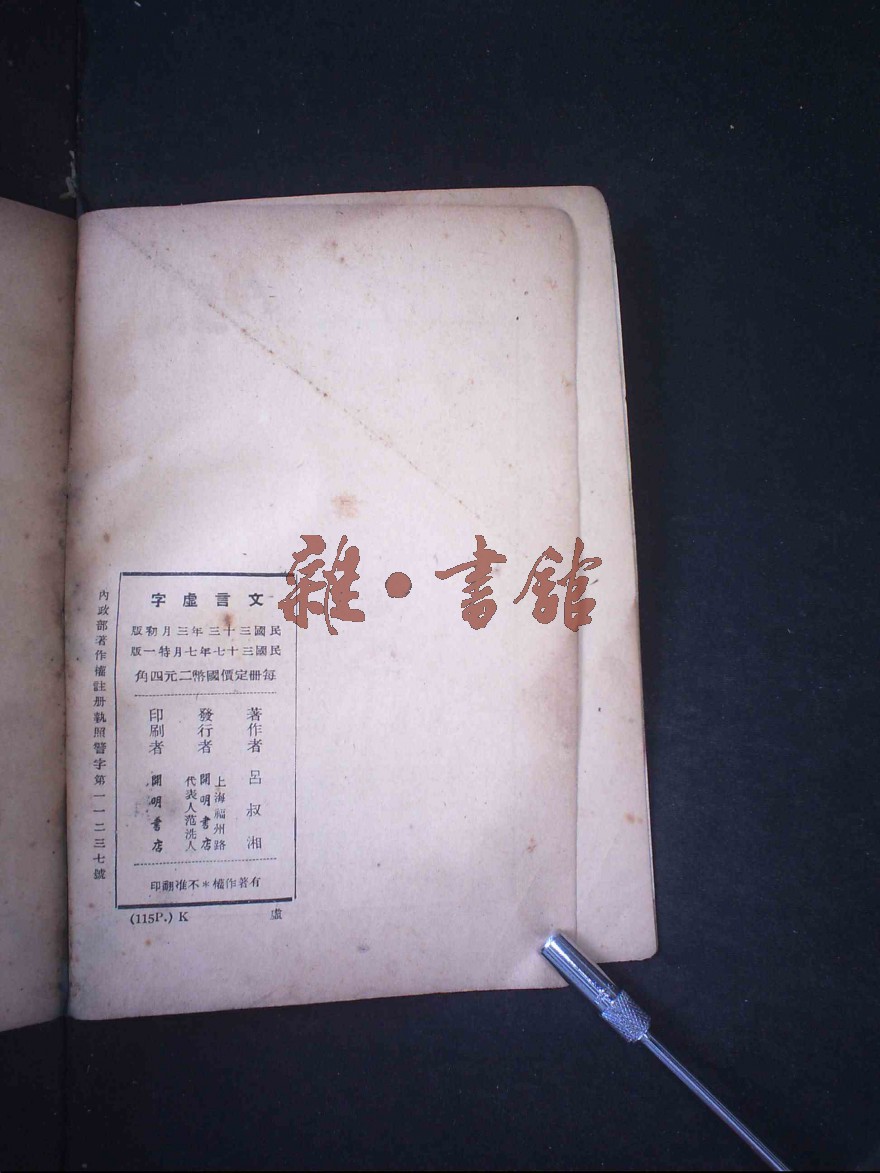 文言虛字
民國三十三年三月初版
民國三十七年七月特一版
每册定價國幣二元四角
著作者 呂叔湘
發行者 上海福州路 開明書店 代表人范洗人
印刷者 開明書店
有著作權*不准翻印
(115P.) K
虛
內政部著作權註册執照警字第一一二三七號
雜·書館